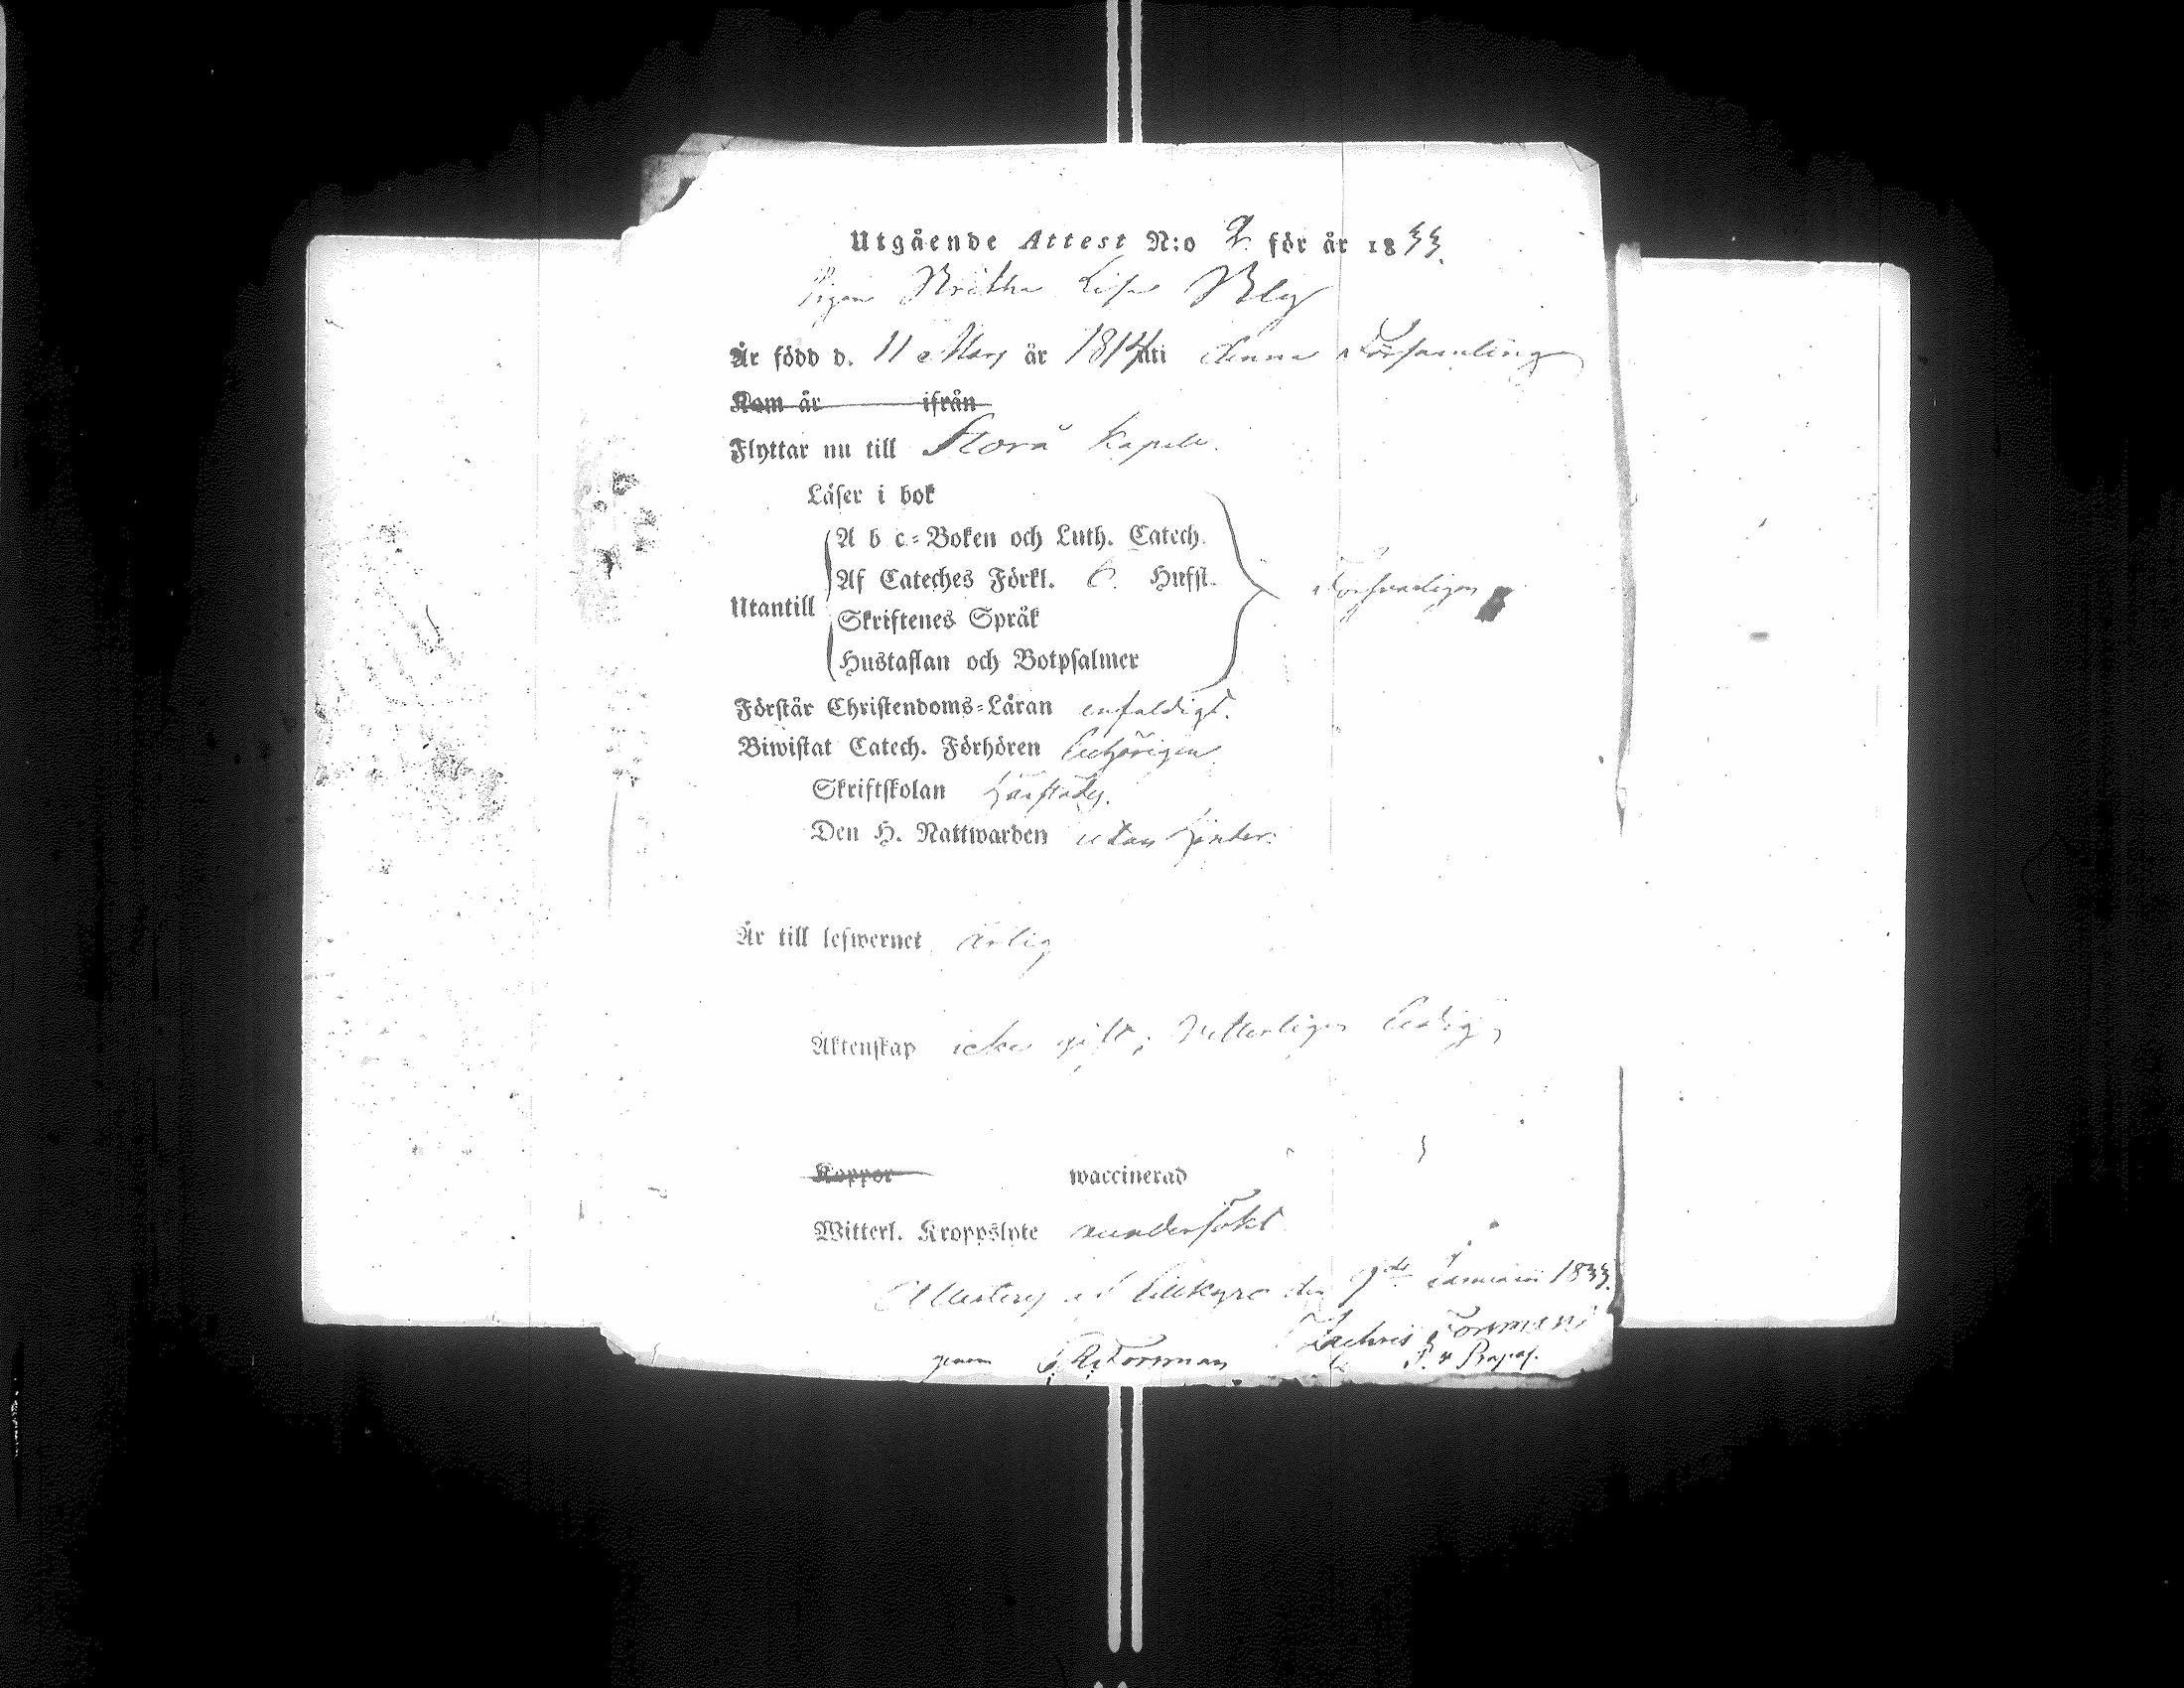 Utgående Attest N:o 2. för år 1833.
Pigan Britha Lisa Bly
Är född d. 11 Mars år 1814 uti denna Församling
Kom år ifrån
Flyttar nu till Storå Kapell.
Läser i bok
A b c-Boken och Luth. Catech.
Af Cateches Förkl. Husfl.
Utantill
Skriftenes Språk
Hustaflan och Botpsalmer
Förstår Christendoms-Läran enfaldigt.
Biwistat Catech. Förhören behörigen
Skriftskolan
Den H. Nattwarden utan hinder.
Är till lefwernet ärlig
Äktenskap icke gift; Vetterligen ledig,
Koppor waccinerad
Witterl. Kroppslyte oundersökt
Attestery Lillkyro den 9de Januarii 1833.
Zachris Forsman
genom Forsman P. o. Prapos.